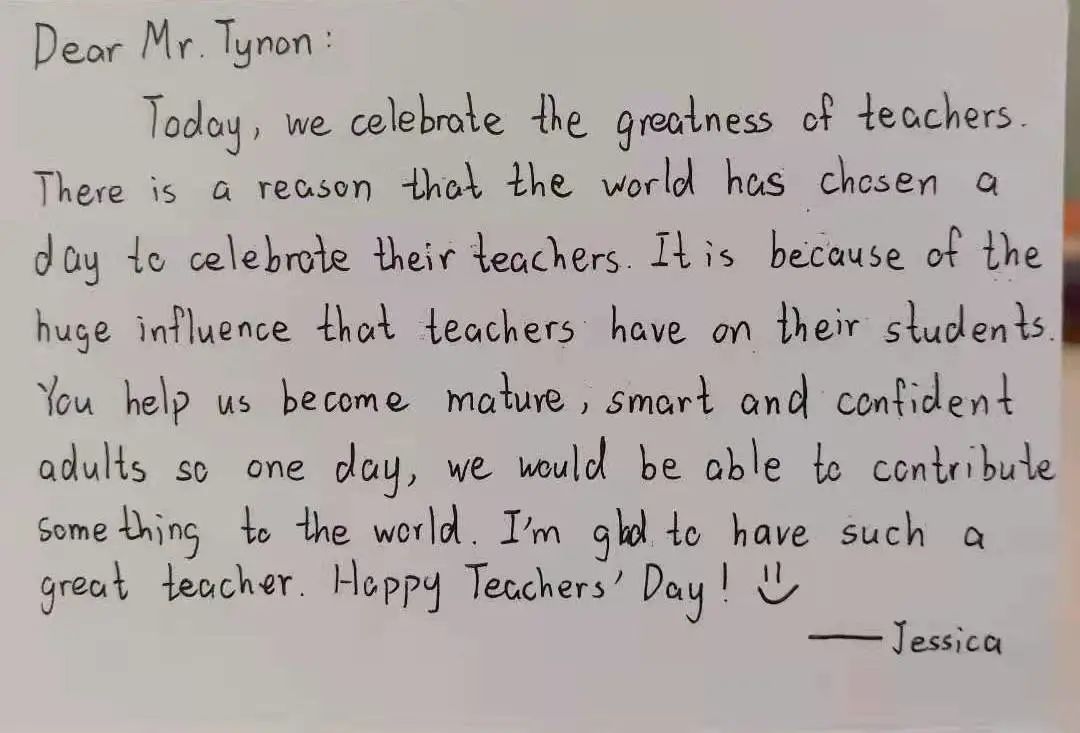 Dear Mr. Tynon:
Today, we celebrate the greatness of teachers.
There is a reason that the world has chosen a
day to celebrate their teachers. It is because of the
huge influence that teachers have on their students.
You help us become mature, smart and confident
adults so one day, we would be able to contribute
something to the world. I'm glad to have such a
great teacher. Happy Teachers' Day!
—Jessica